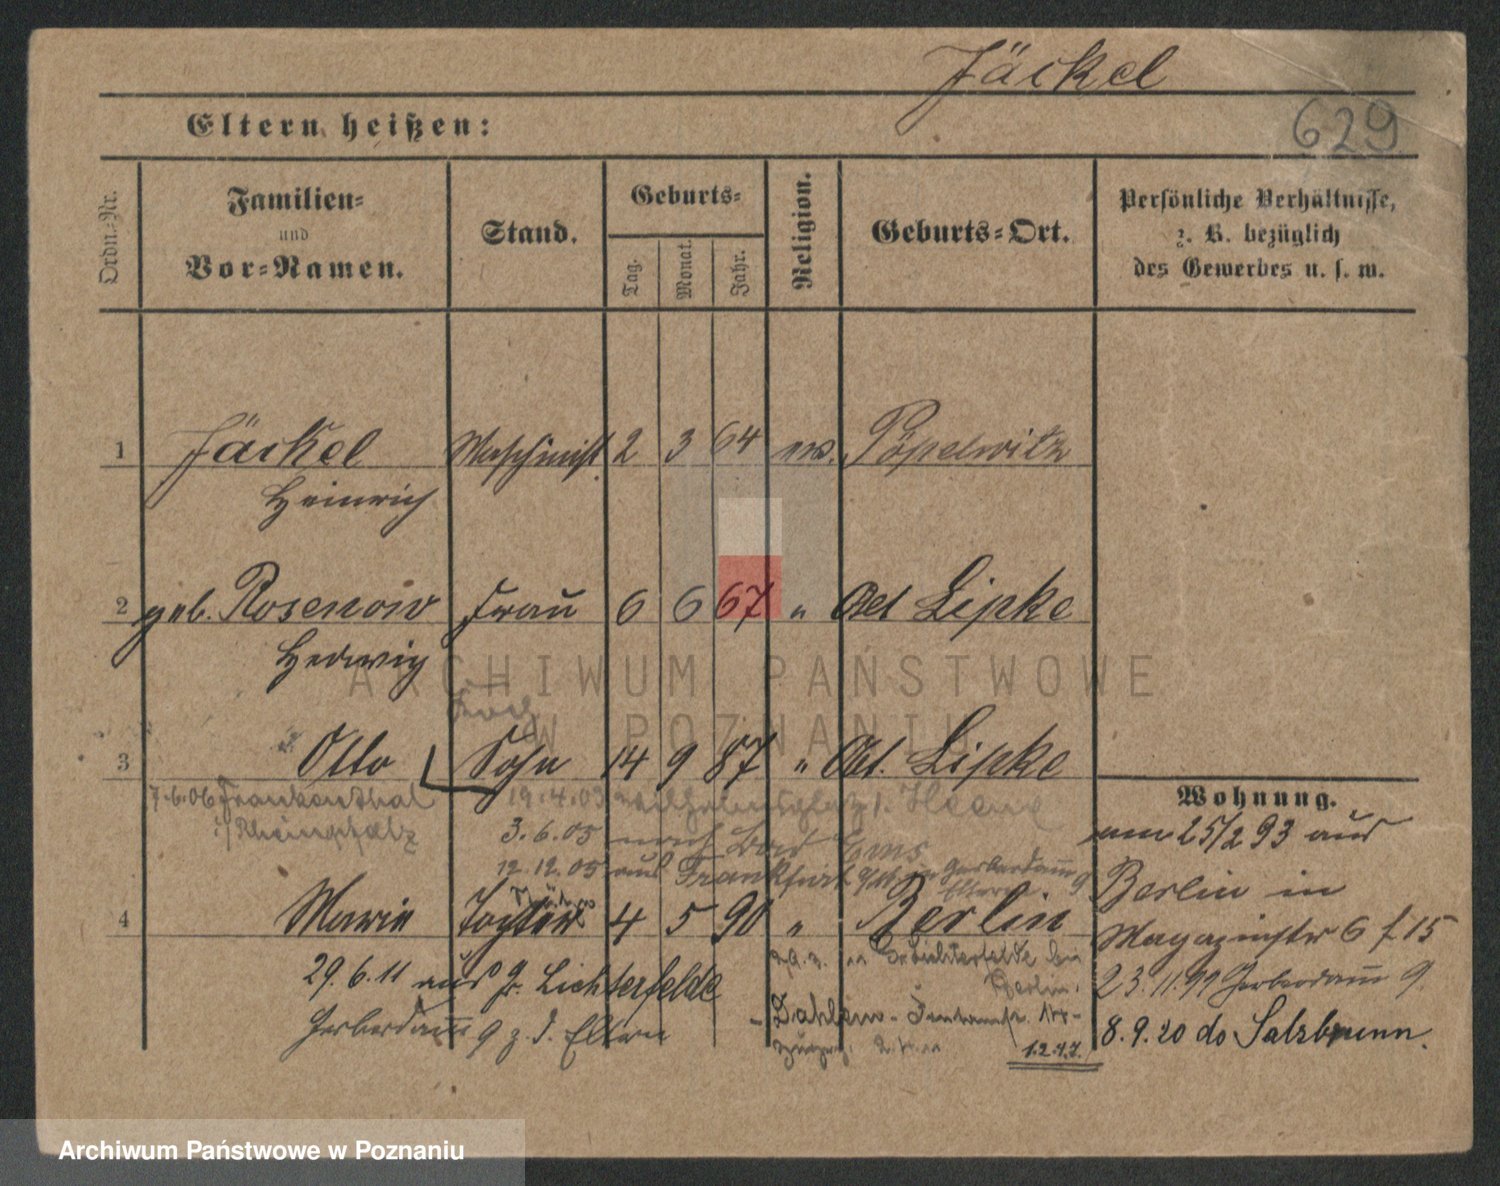 Jäckel
629
Eltern heißen:
Ordn.-Nr.
Familien-
und
Vor-Namen.
Stand.
Geburts-
Tag.
Monat.
Jahr.
Religion.
Geburts-Ort.
Persönliche Verhältnisse,
z. B. bezüglich
des Gewerbes u. s. w.
1 Jäckel Maschinist 2 3 64 ev. Pöpelwitz
Heinrich
2 geb. Rosenow Frau 6 6 67 " Lipke
Hedwig
ARCHIWUM PAŃSTWOWE
W POZNANIU
3 Otto Sohn 14 9 87 " Lipke
7.6.06 Frankenthal
i/ Rheinpfalz
19.4.03 Wilhelmsplatz 1.
3.6.05 nach Bad Ems
12.12.05 aus Frankfurt Gerberdamm 9
Eltern
4 Marie Tochter 4 5 90 " Berlin
29.6.11 aus Gr. Lichterfelde
Gerberdamm 9 z. d. Eltern
Gr. Lichterfelde bei
Berlin.
Dahlem-
1.2.47.
Wohnung.
am 25/2 93 aus
Berlin in
Magazinstr 6 f 15
23.11.99 Gerberdamm 9.
8.9.20 do Salzbrunn.
Archiwum Państwowe w Poznaniu